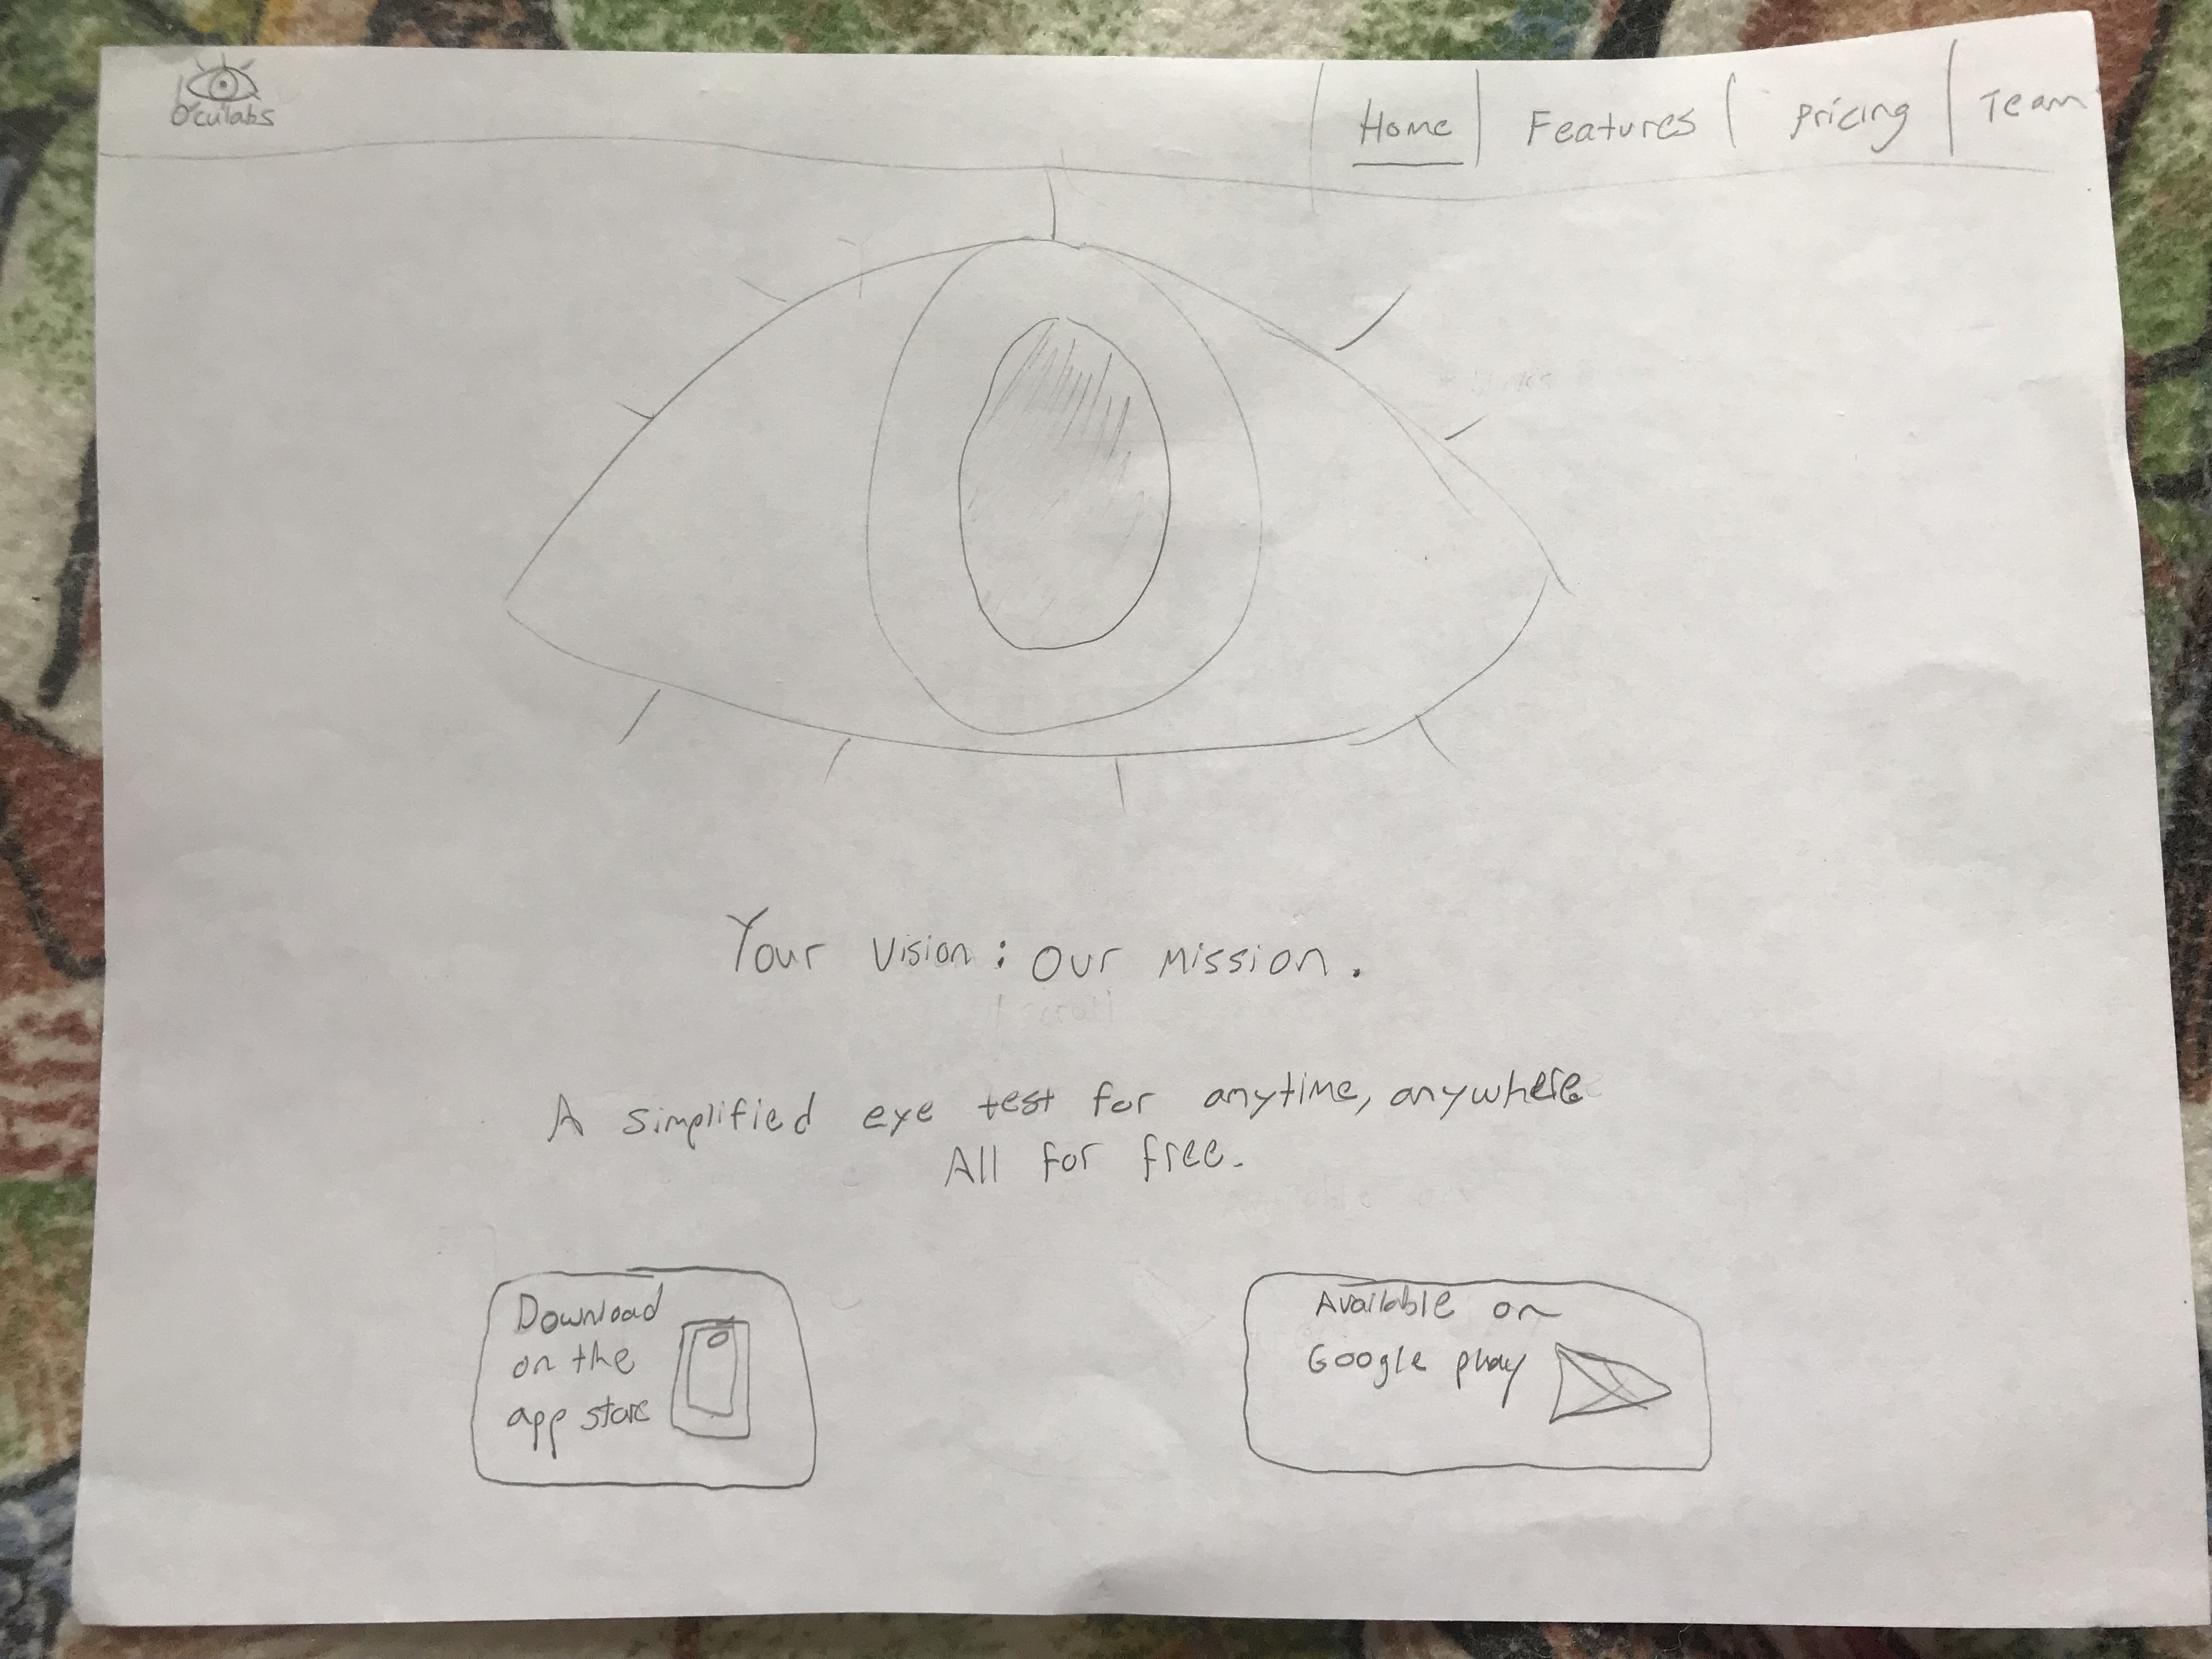 Oculabs
Home
Features
Pricing
Team
Your Vision: Our Mission.
A simplified eye test for anytime, anywhere
All for free.
Download
on the
app store
Available on
Google play